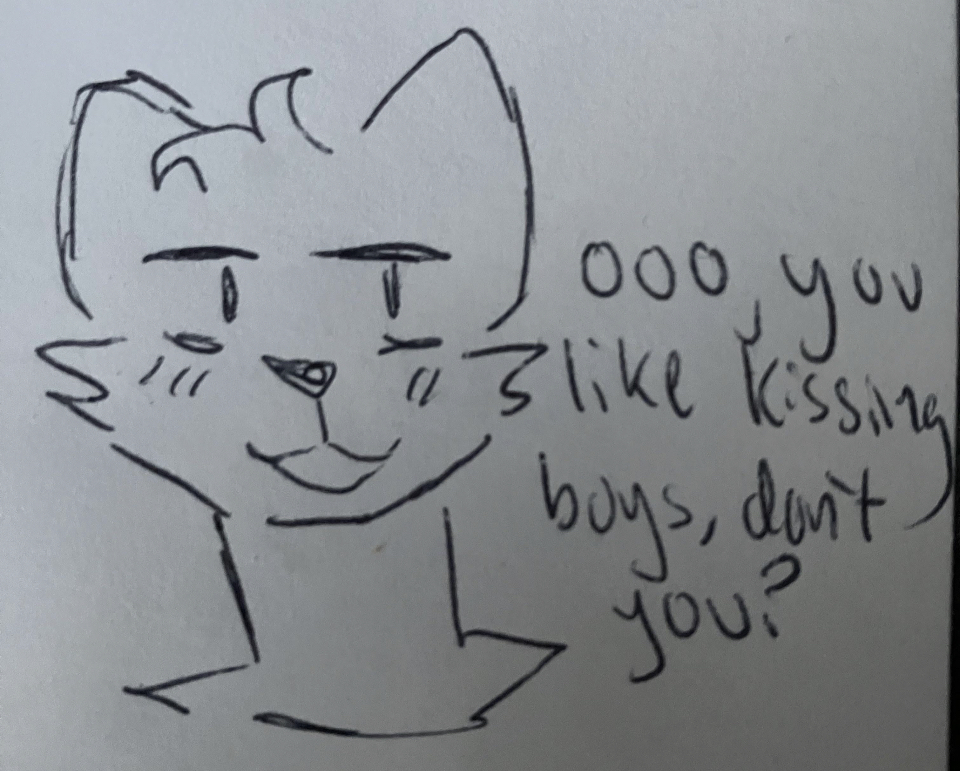 OOO, you
like kissing
boys, don't
you?